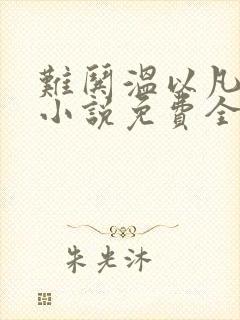 難鬨溫以凡
小說免費全
朱光沐